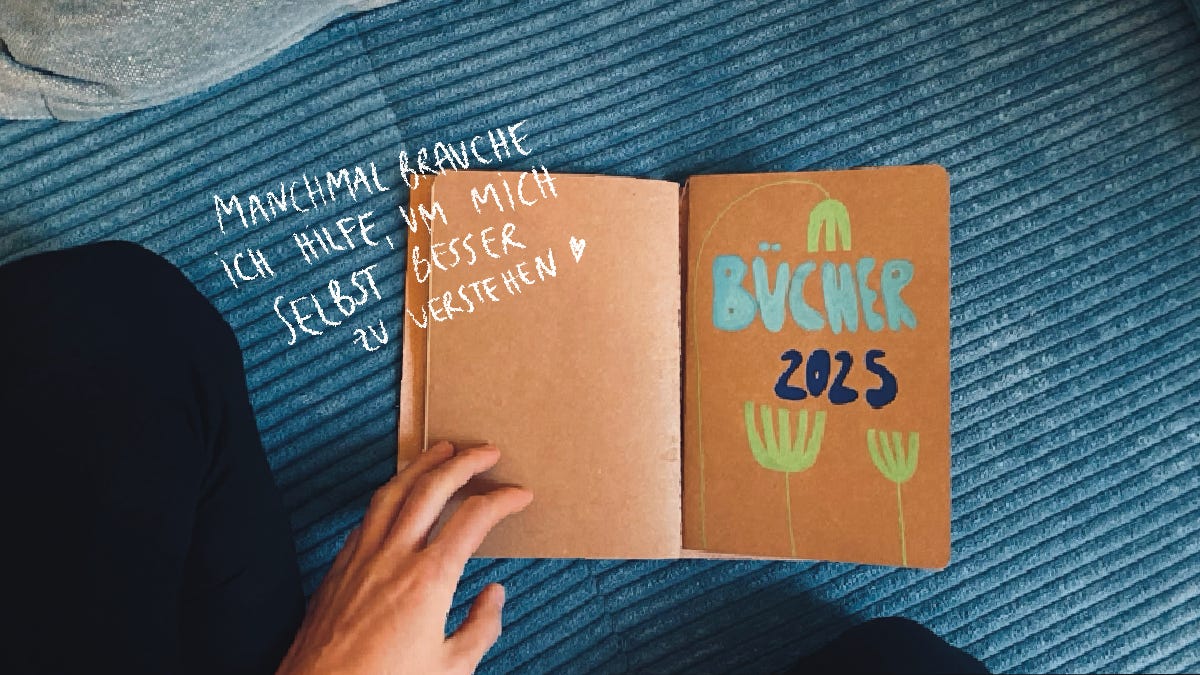 MANCHMAL BRAUCHE
ICH HILFE, UM MICH
SELBST BESSER
ZU VERSTEHEN
BÜCHER
2025